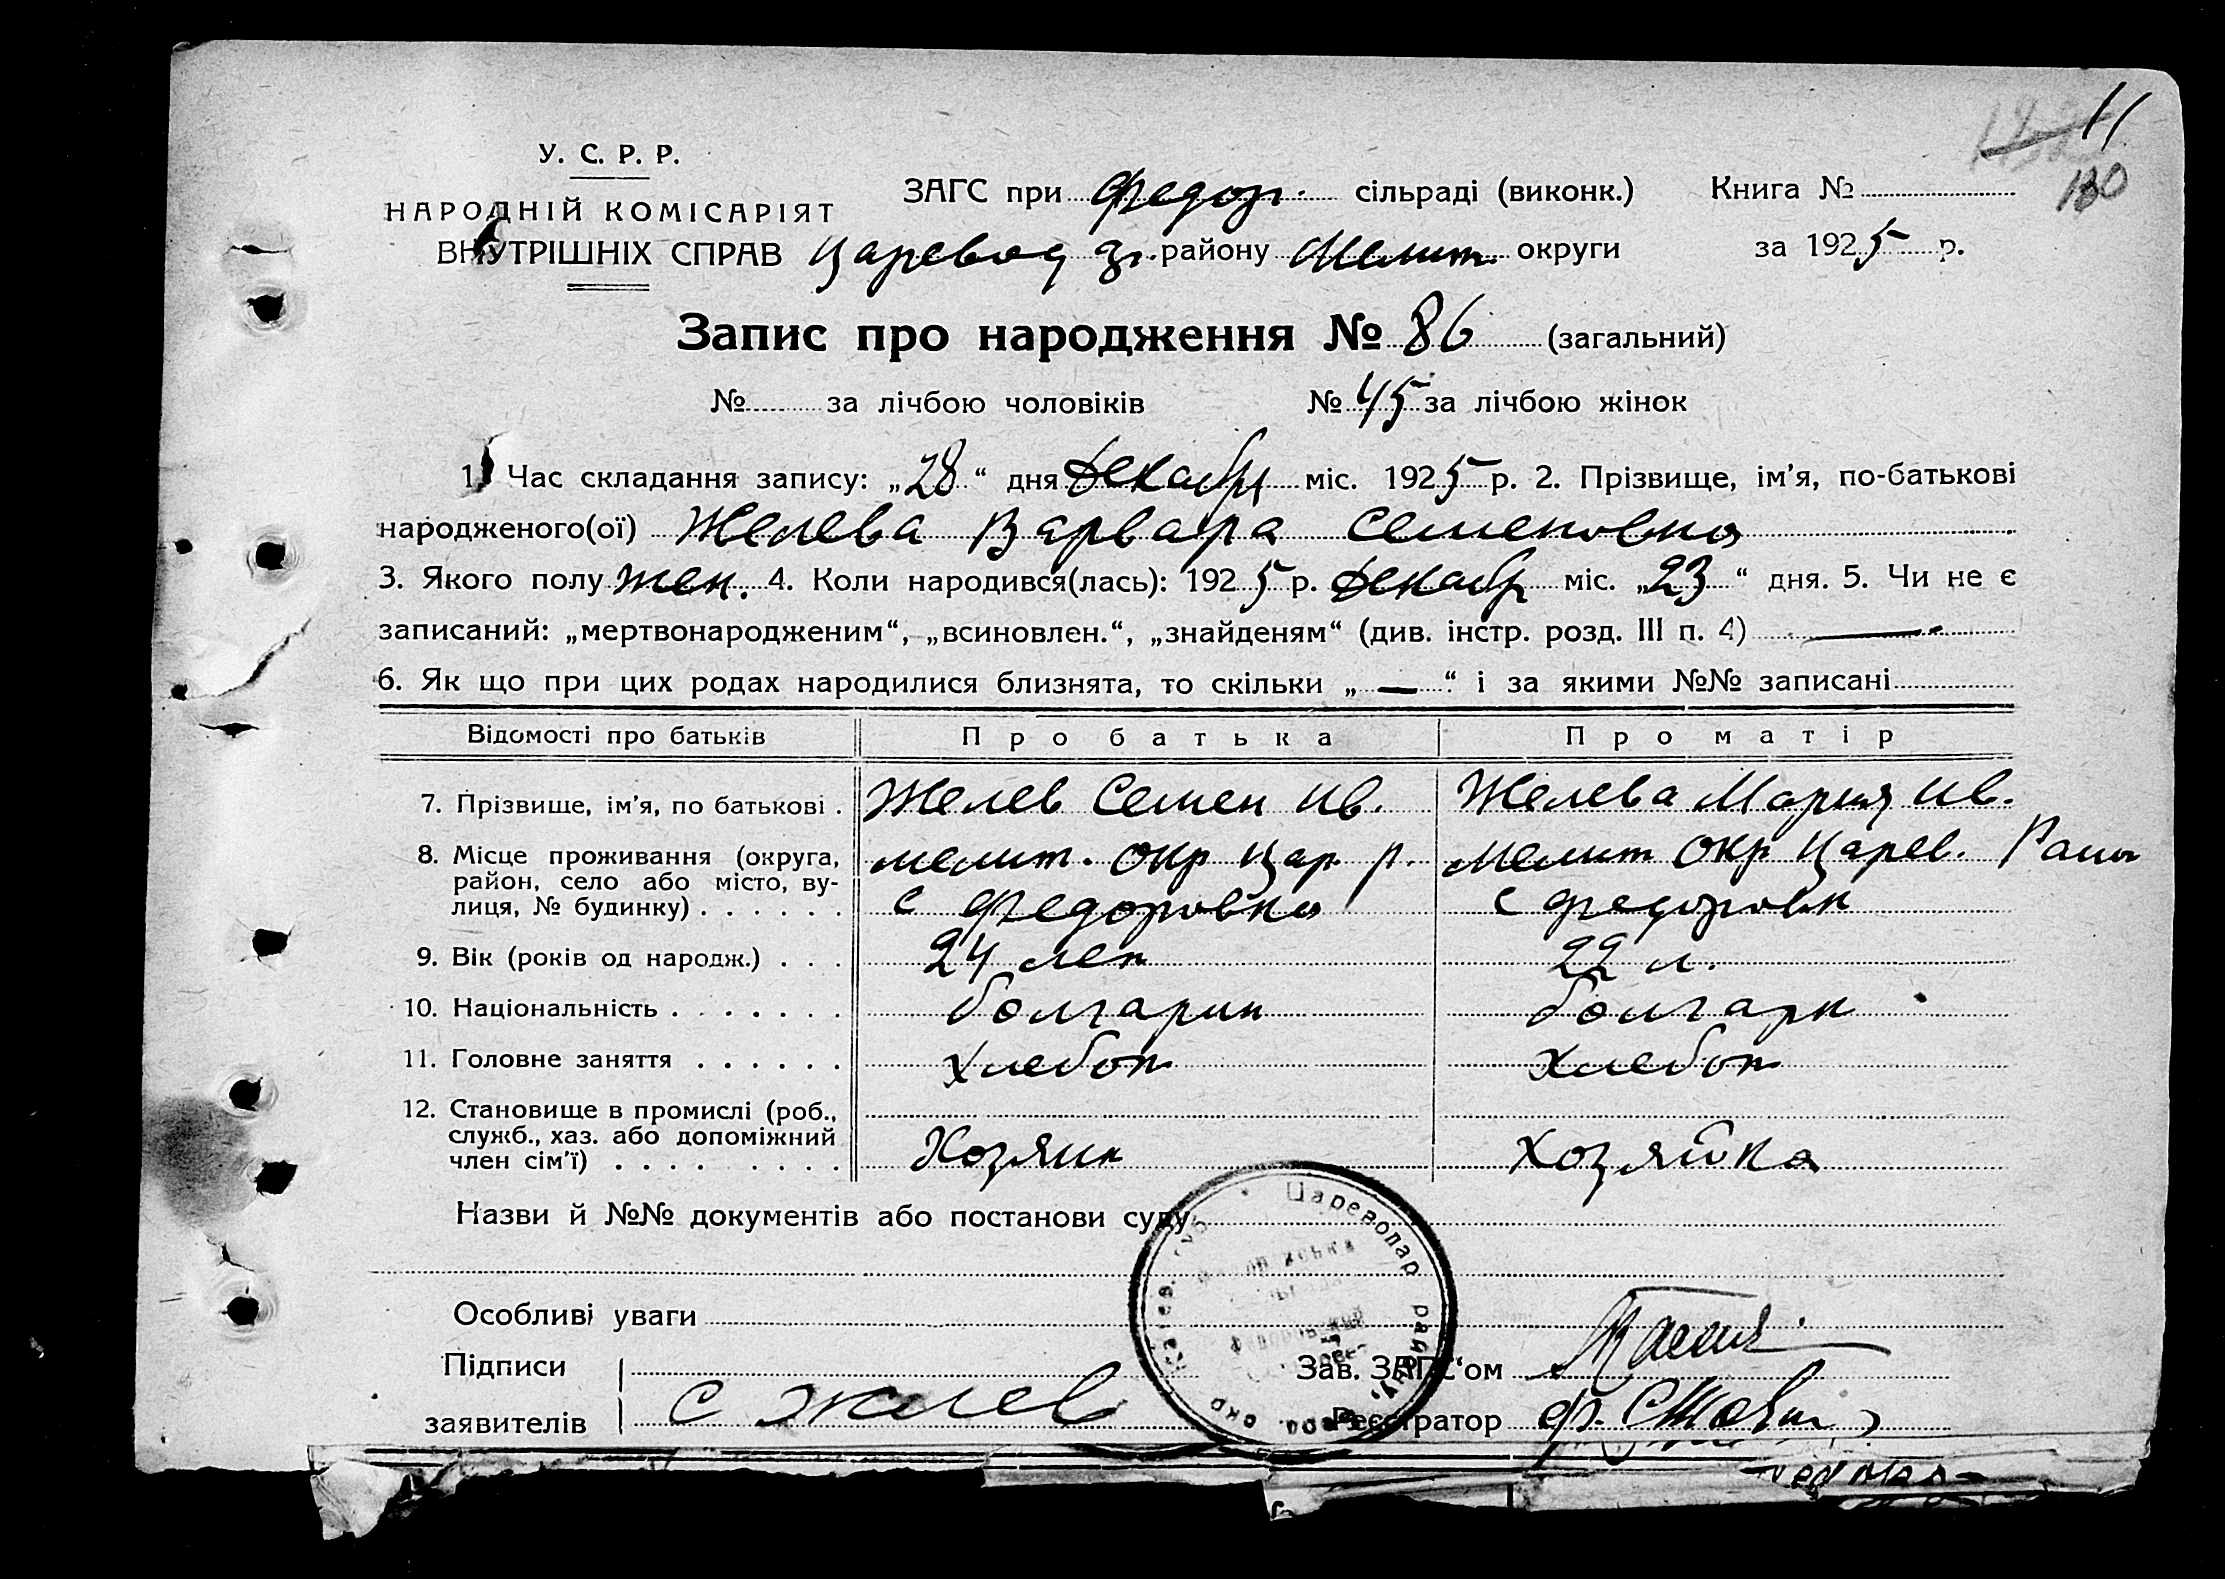 11
130
У. С. Р. Р.
НАРОДНІЙ КОМІСАРІЯТ
ВНУТРІШНІХ СПРАВ
ЗАГС при Федор. сільраді (виконк.) Книга №
району Мелит. округи за 1925 р.
Запис про народження № 86 (загальний)
№ за лічбою чоловіків № 45 за лічбою жінок
1) Час складання запису: „28“ дня декабр міс. 1925 р. 2. Прізвище, ім’я, по-батькові
народженого(ої) Желева Варвара Семеновна
3. Якого полу жен. 4. Коли народився(лась): 1925 р. декабр міс. „23“ дня. 5. Чи не є
записаний: „мертвонародженим“, „всиновлен.“, „знайденям“ (див. інстр. розд. III п. 4) —
6. Як що при цих родах народилися близнята, то скільки „—“ і за якими №№ записані
Відомості про батьків Про батька Про матір
7. Прізвище, ім’я, по батькові . Желев Семен Ив. Желева Мария Ив.
8. Місце проживання (округа, мелит. окр Цар р. Мелит окр Царев.
район, село або місто, ву-
лиця, № будинку) . . . . . . с Федоровка с Федоровк
9. Вік (років од народж.) . . . 24 лет 22 л.
10. Національність . . . . . . . болгарин болгарк
11. Головне заняття . . . . . . хлебоп хлебоп
12. Становище в промислі (роб.,
служб., хаз. або допоміжний
член сім’ї) . . . . . . . . Хозяин хозяйка
Назви й №№ документів або постанови суду
Цареводар район
Особливі уваги
Підписи Зав. ЗАГС‘ом
заявителів С Желев Реєстратор